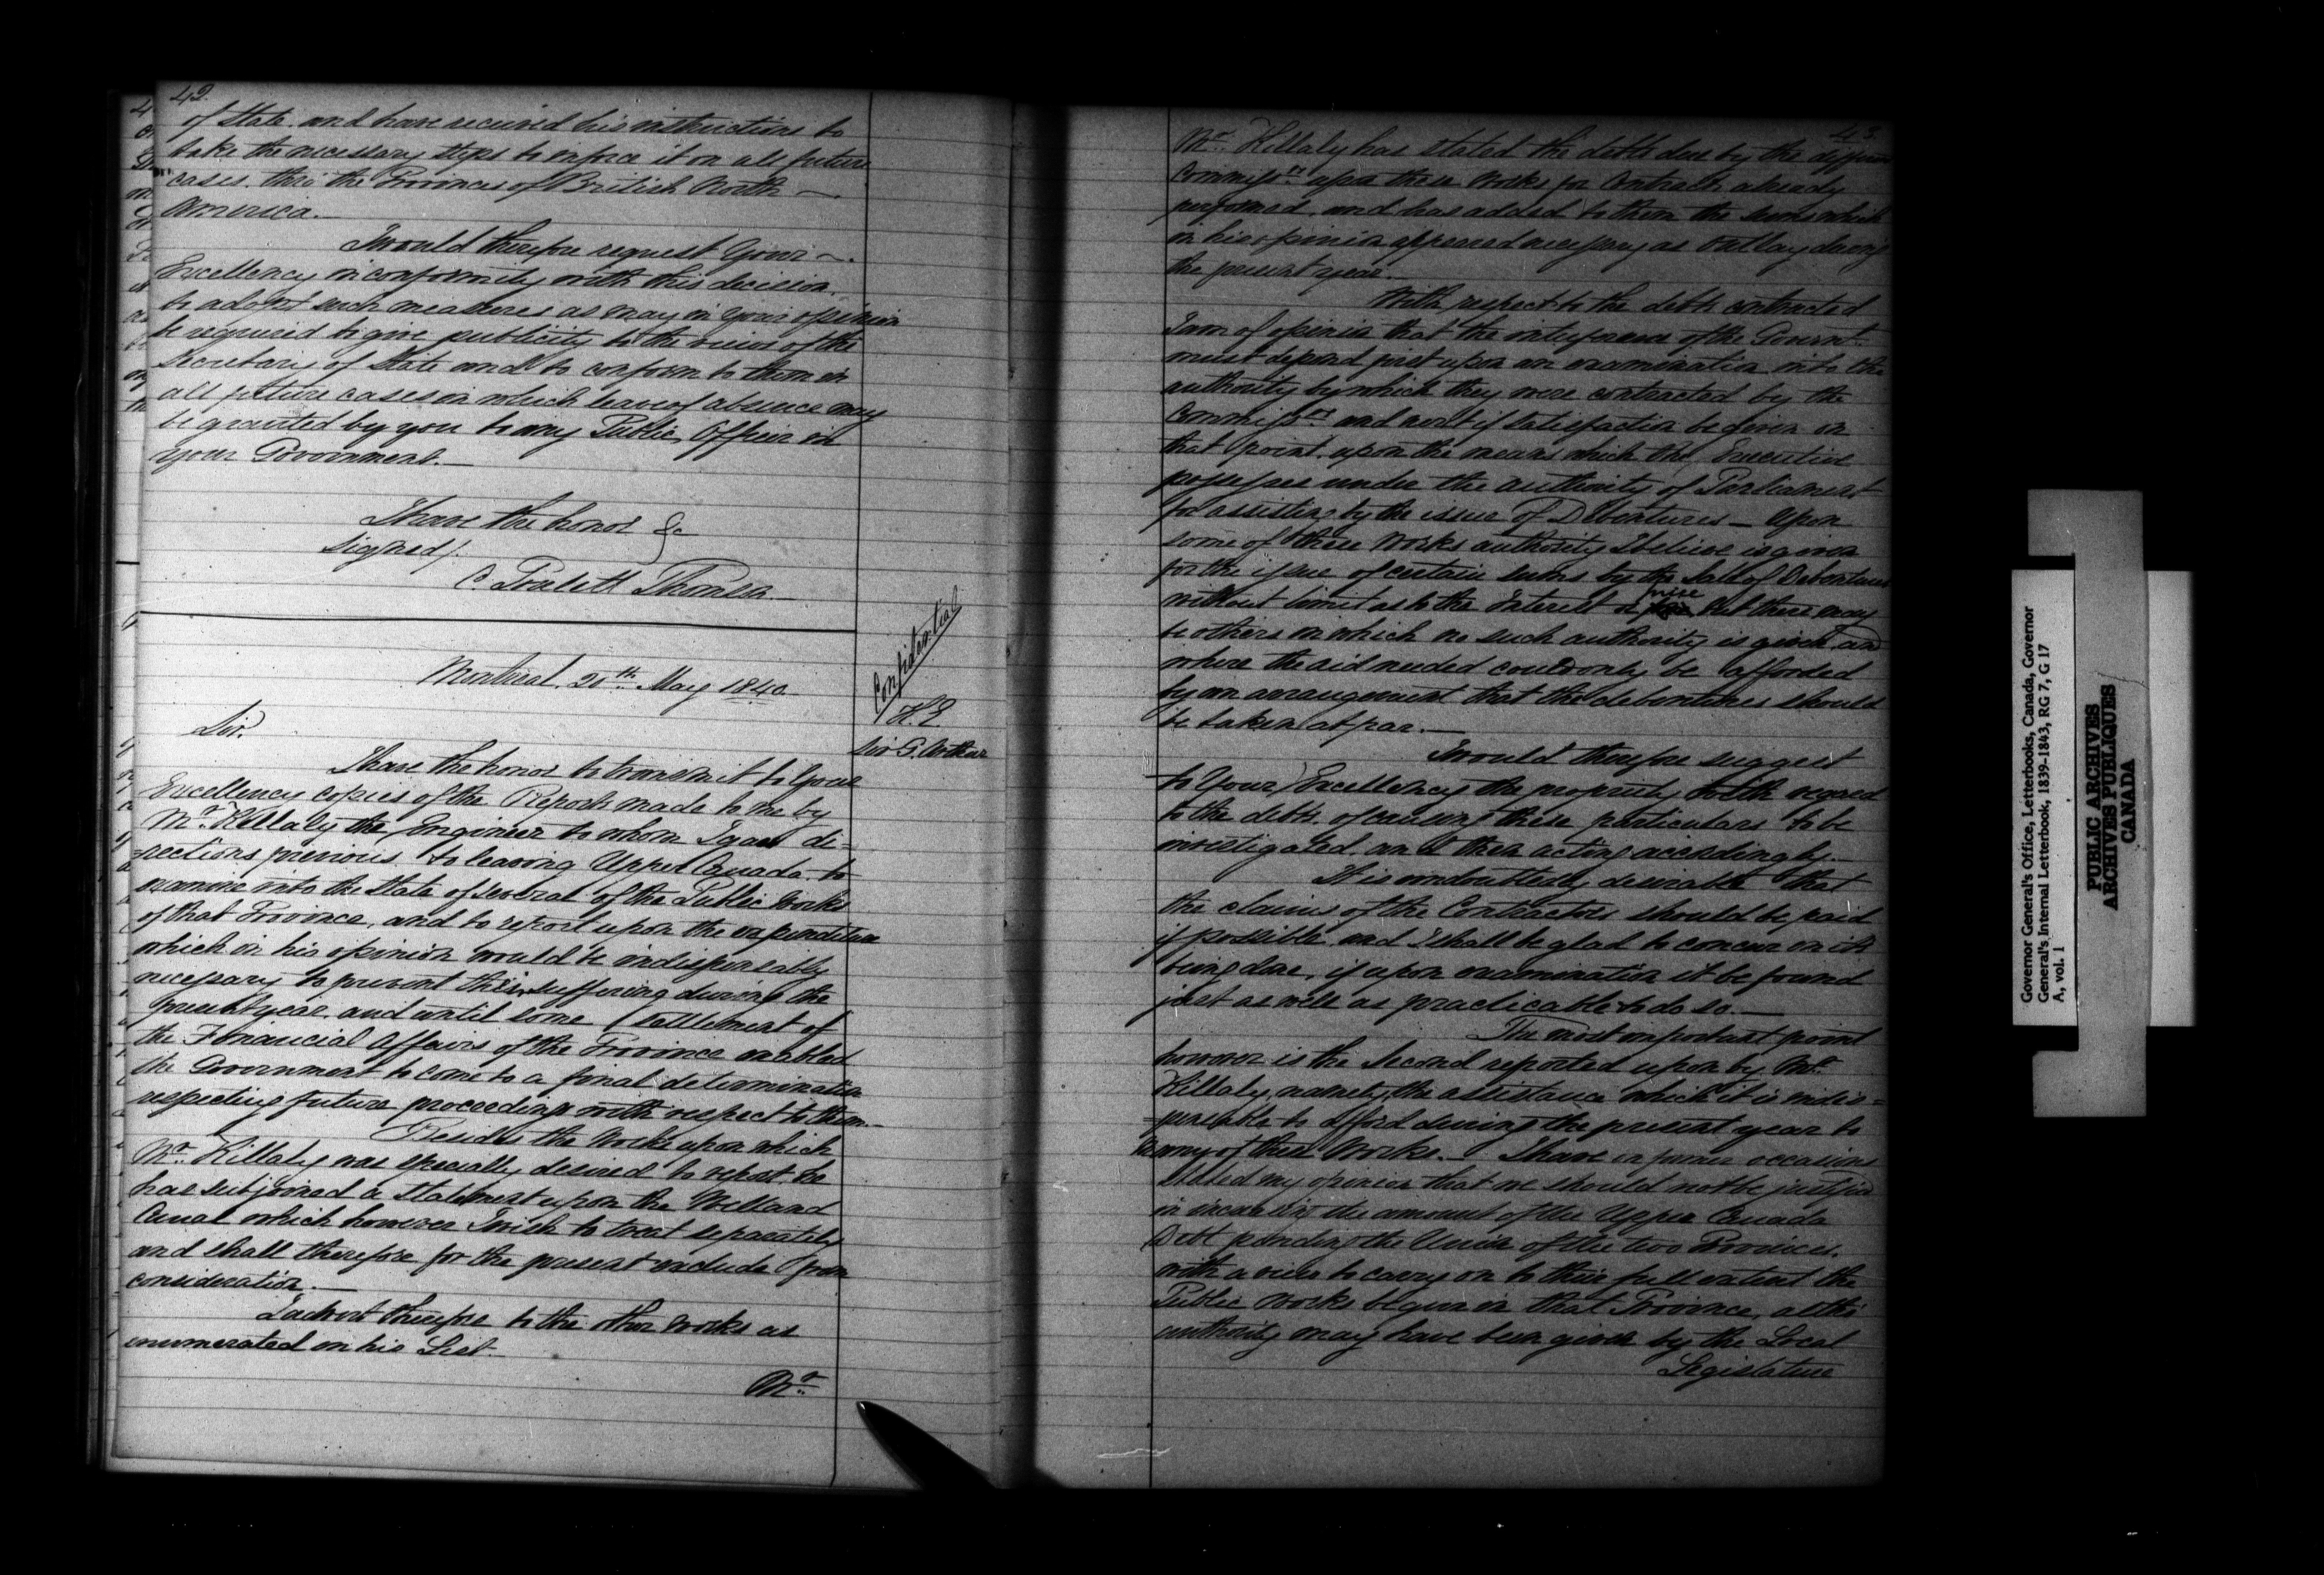 42.
of State and have received his instructions to
take the necessary steps to inforce it on all future
cases thro' the Provinces of British North
America.
I would therefore request Your
Excellency in conformity with this decision
to adopt such measures as may in your opinion
be required to give publicity to the views of the
Secretary of State and to conform to them in
all future cases in which leave of absence may
be granted by you to any Public Officer in
your Government.
I have the honor &c
Signed/.
C. Poulett Thomson
Montreal. 20th May 1840
Confidential
H.E.
Sir G. Arthur
Sir.
I have the honor to transmit to Your
Excellency copies of the Report made to me by
Mr. Killaly the Engineer to whom I gave di-
-rections previous to leaving Upper Canada to
examine into the state of several of the Public Works
of that Province, and to report upon the expenditure
which in his opinion would be indispensably
necessary to prevent their suffering during the
present year and until some settlement of
the Financial Affairs of the Province enabled
the Government to come to a final determination
respecting future proceedings with respect to them.
Besides the Works upon which
Mr. Killaly was specially desired to report he
has subjoined a statement upon the Welland
Canal which however I wish to treat separately
and shall therefore for the present exclude from
consideration.
I advert therefore to the other works as
enumerated in his List.
Mr.
43
Mr. Killaly has stated the debts due by the different
Commissrs upon these Works for Contracts already
performed, and has added to them the sums which
in his opinion appeared necessary as outlay during
the present year.
With respect to the debts contracted
I am of opinion that the interference of the Governt
must depend first upon an examination into the
authority by which they were contracted by the
Commissrs and next if satisfaction be given on
that point upon the means which the Executive
possesses under the authority of Parliament
for assisting by the issue of Debentures — Upon
some of these Works authority I believe is given
for the issue of certain sums by the Sale of Debentures
without limit as to the Interest or price but there may
be others in which no such authority is given and
where the aid needed could only be afforded
by an arrangement that the debentures should
be taken at par.
I would therefore suggest
to Your Excellency the propriety with regard
to the debts of causing these particulars to be
investigated and then acting accordingly.
It is undoubtedly desirable that
the claims of the Contractors should be paid
if possible and I shall be glad to concur in its
being done, if upon examination it be found
just as well as practicable to do so.
The most important point
however is the Second reported upon by Mr.
Killaly, namely, the assistance which it is indis=
=pensable to afford during the present year to
many of these Works. I have on former occasions
stated my opinion that we should not be justified
in increasing the amount of the Upper Canada
Debt pending the Union of the two Provinces,
with a view to carry on to their full extent the
Public Works begun in that Province, altho'
authority may have been given by the Local
Legislature
Governor General's Office, Letterbooks, Canada, Governor
General's Internal Letterbook, 1839-1843, RG 7, G 17
A, vol. 1
PUBLIC ARCHIVES
ARCHIVES PUBLIQUES
CANADA